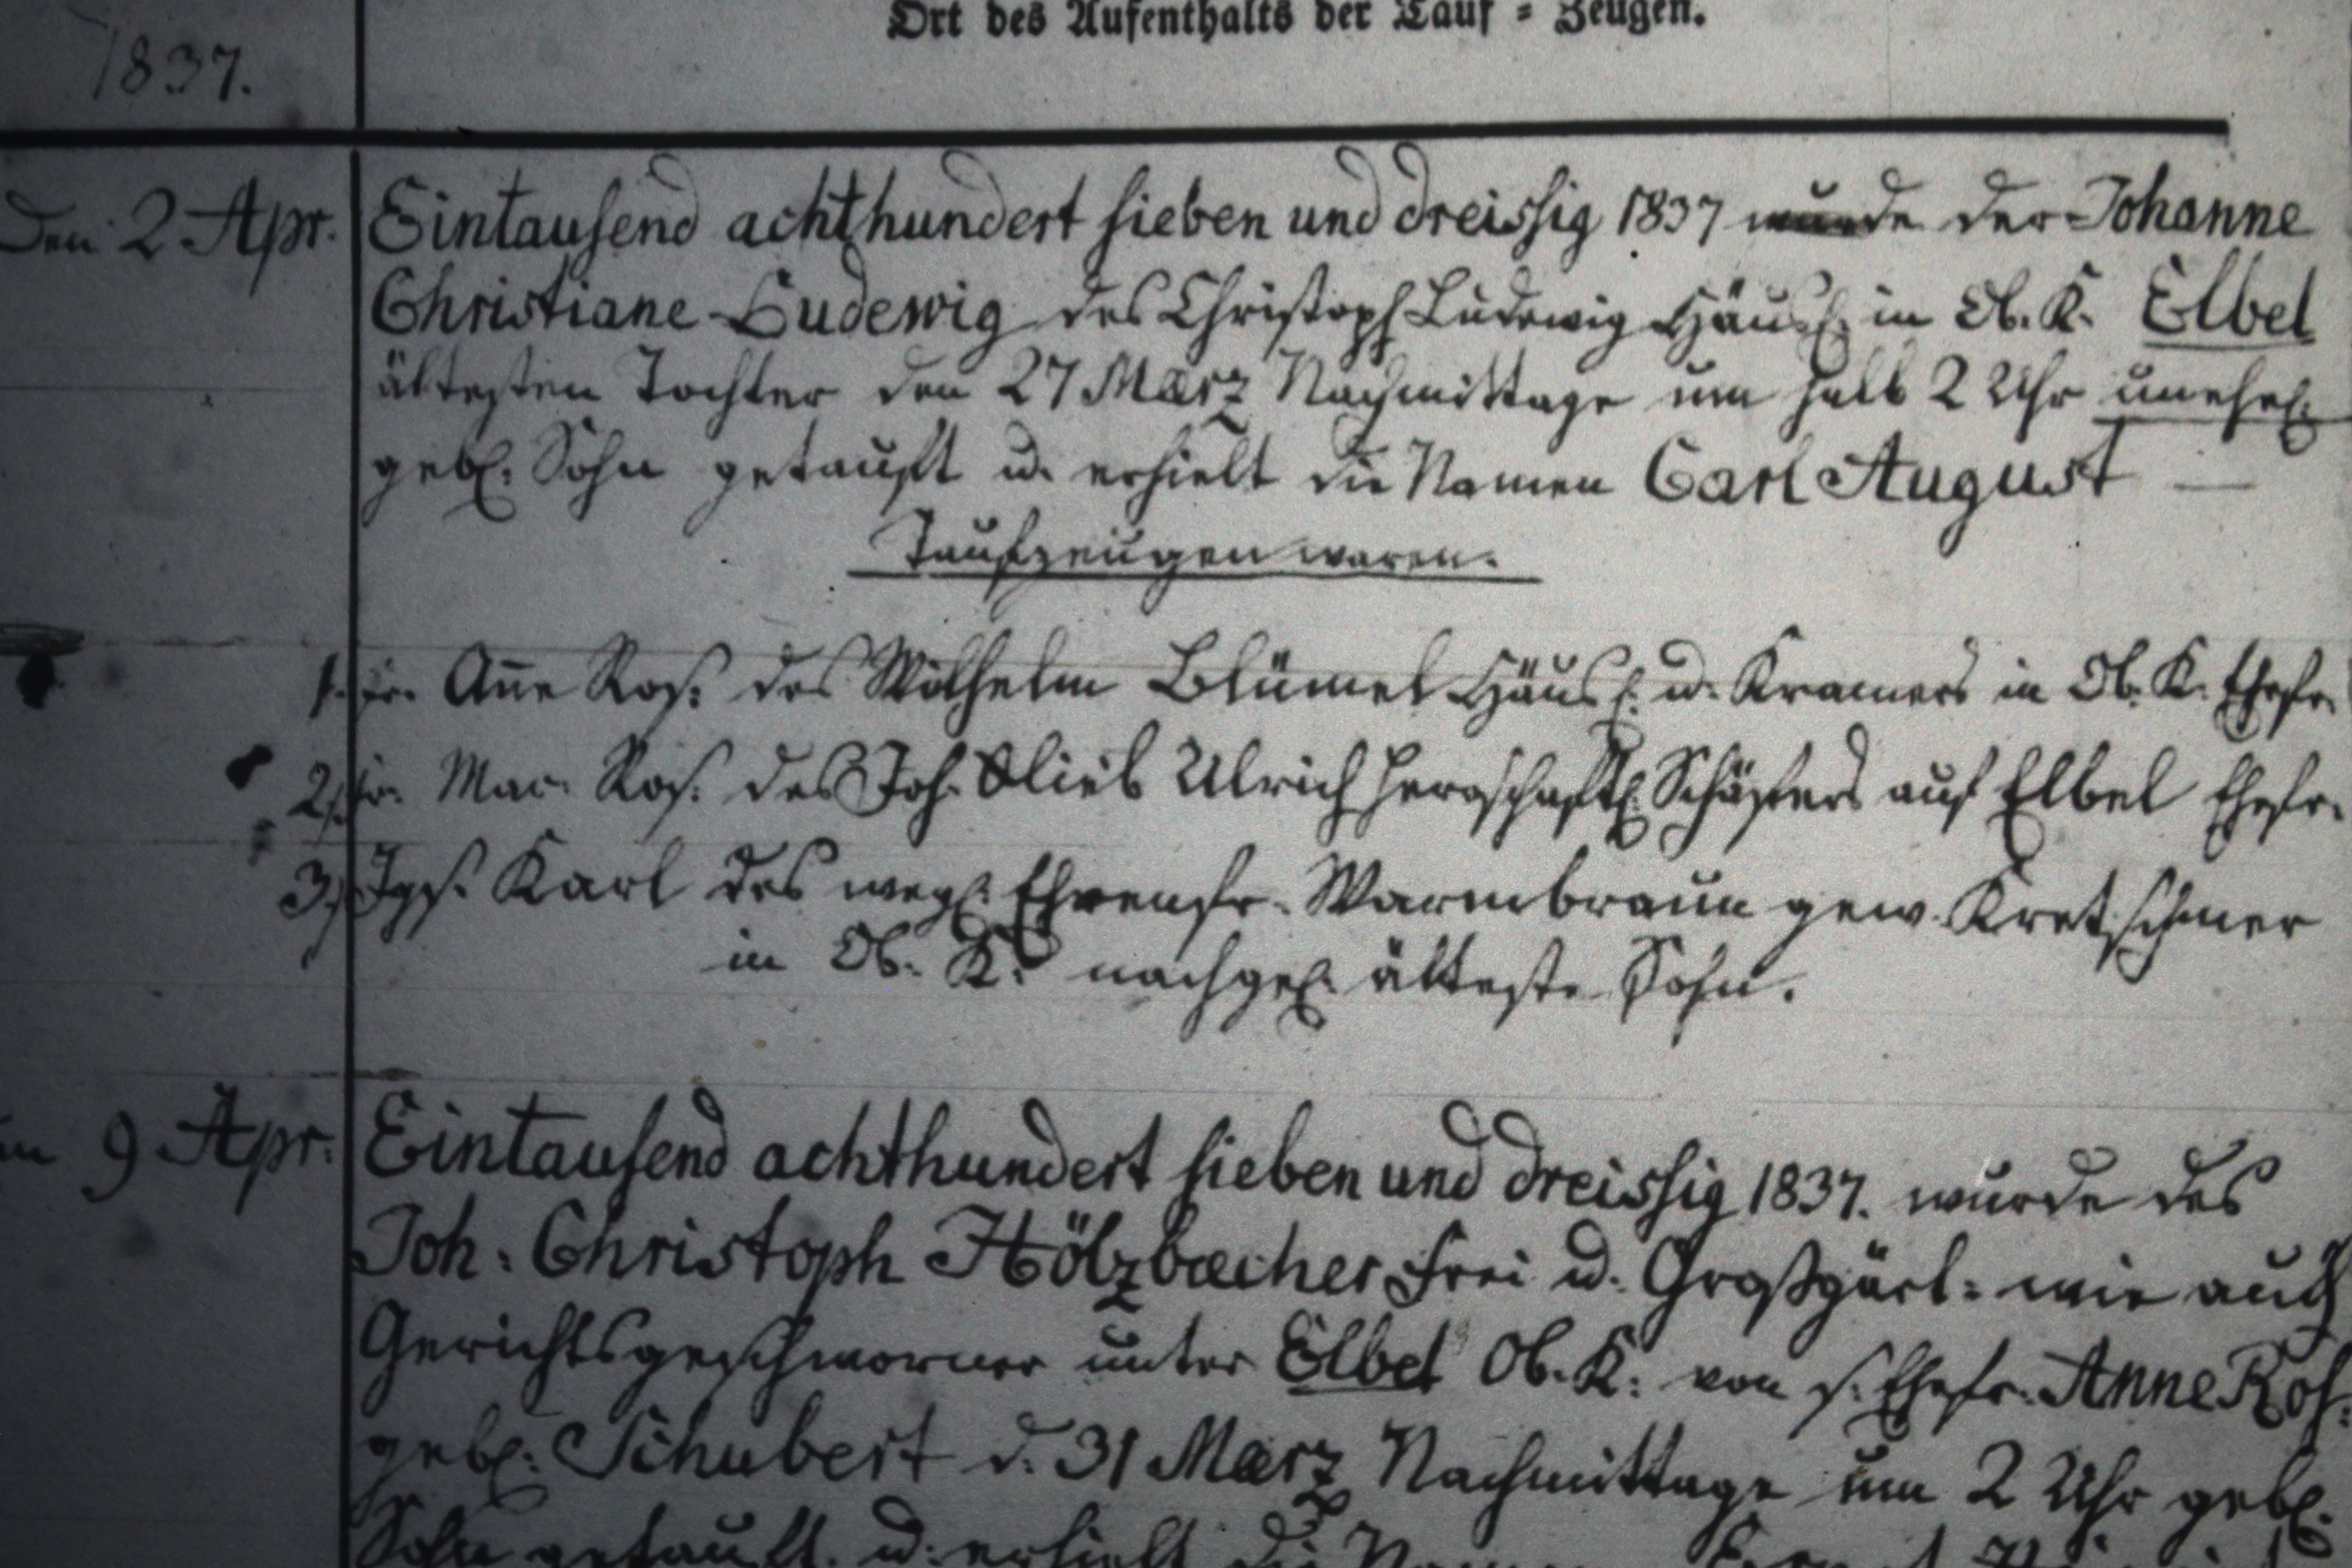 Ort des Aufenthalts der Tauf = Zeugen.
1837.
Den 2 Apr. Eintausend achthundert sieben und dreissig 1837 wurde der Johanne
Christiane Ludewig des Christoph Ludewig Häusl. in Ob. K. Elbel
ältesten Tochter den 27 Maerz Nachmittage um halb 2 Uhr unehel.
gebl. Sohn getauft u. erhielt die Namen Carl August —
Taufzeugen waren.
1. Fr. Ane Ros. des Wilhelm Blümel Häusl. u. Kramers in Ob. K. Ehefr.
2, Fr. Mar. Ros. des Joh. Glieb Ulrich herrschaftl. Schäfers auf Elbel Ehefr.
3, Igs. Karl des wegl. Ehrenfr. Warmbraun gew. Kretschmer
in Ob. K. nachgel. älteste Sohn.
9 Apr. Eintausend achthundert sieben und dreissig 1837. wurde des
Joh: Christoph Hölzbecher Frei u. Großgärt: wie auch
Gerichtsgeschworner unter Elbel Ob. K: von s. Ehefr. Anne Ros.
gebl. Schubert d. 31 Maerz Nachmittage um 2 Uhr gebl.
Sohn getauft. u. erhielt die Namen